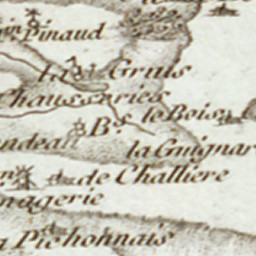 Pinaud
la Gruis
Chausseries
le Bois
B.
la Guignar
de Challiere
nagerie
Pichonnais